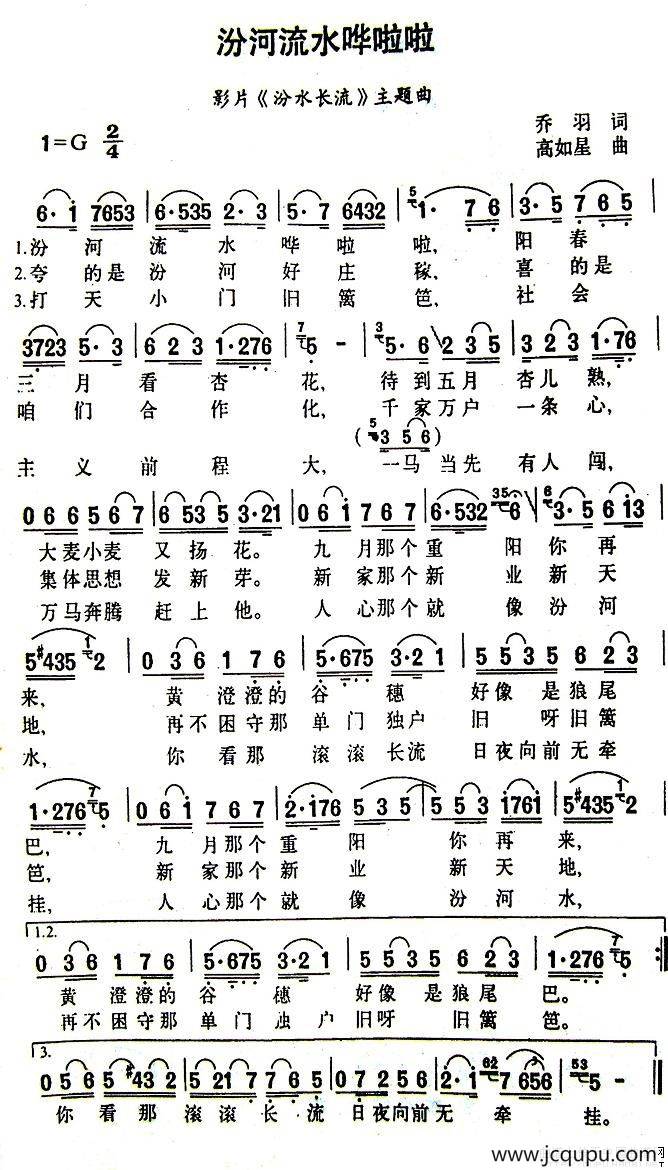 汾河流水哗啦啦
影片《汾水长流》主题曲
1=G 2/4
乔 羽 词
高如星 曲
6·i 7653 | 6·535 2·3 | 5·7 6432 | 1· 7 6 | 3·5 7 6 5 |
1.汾 河 流 水 哗 啦 啦, 阳 春
2.夸 的是 汾 河 好 庄 稼, 喜 的是
3.打 天 小 门 旧 篱 笆, 社 会
3723 5·3 | 6 2 3 1·276 | 5 - | 5·6 2 3 5 | 3 2 3 1·76 |
三 月 看 杏 花, 待 到 五 月 杏 儿 熟,
咱 们 合 作 化, 千 家 万 户 一 条 心,
(3 5 6)
主 义 前 程 大, 一 马 当 先 有 人 闯,
0 6 6 5 6 7 | 6 5 3 5 3·21 | 0 6 i 7 6 7 | 6·532 6 | 3·5 6 i3 |
大麦小麦 又 扬 花。 九 月那个 重 阳 你 再
集体思想 发 新 芽。 新 家那个 新 业 新 天
万马奔腾 赶 上 他。 人 心那个 就 像 汾 河
5#435 2 | 0 3 6 1 7 6 | 5·675 3·2 1 | 5 5 3 5 6 2 3 |
来, 黄 澄澄的 谷 穗 好像 是 狼尾
地, 再不 困守那 单门 独户 旧 呀 旧 篱
水, 你 看那 滚滚 长流 日夜 向前 无 牵
1·276 5 | 0 6 i 7 6 7 | 2·i76 5 3 5 | 5 5 3 i76i | 5#435 2 |
巴, 九 月那个 重 阳 你 再 来,
笆, 新 家那个 新 业 新 天 地,
挂, 人 心那个 就 像 汾 河 水,
1.2.
0 3 6 1 7 6 | 5·675 3·2 1 | 5 5 3 5 6 2 3 | 1·276 5 :|
黄 澄澄的 谷 穗 好像 是 狼尾 巴。
再不 困守那 单门 独户 旧呀 旧篱 笆。
3.
0 5 6 5 #43 2 | 5 21 7 7 6 5 | 0 7 2 5 6 | 2·i 7 656 | 5 - ‖
你 看 那 滚 滚 长 流 日夜向前 无 牵 挂。
www.jcqupu.com